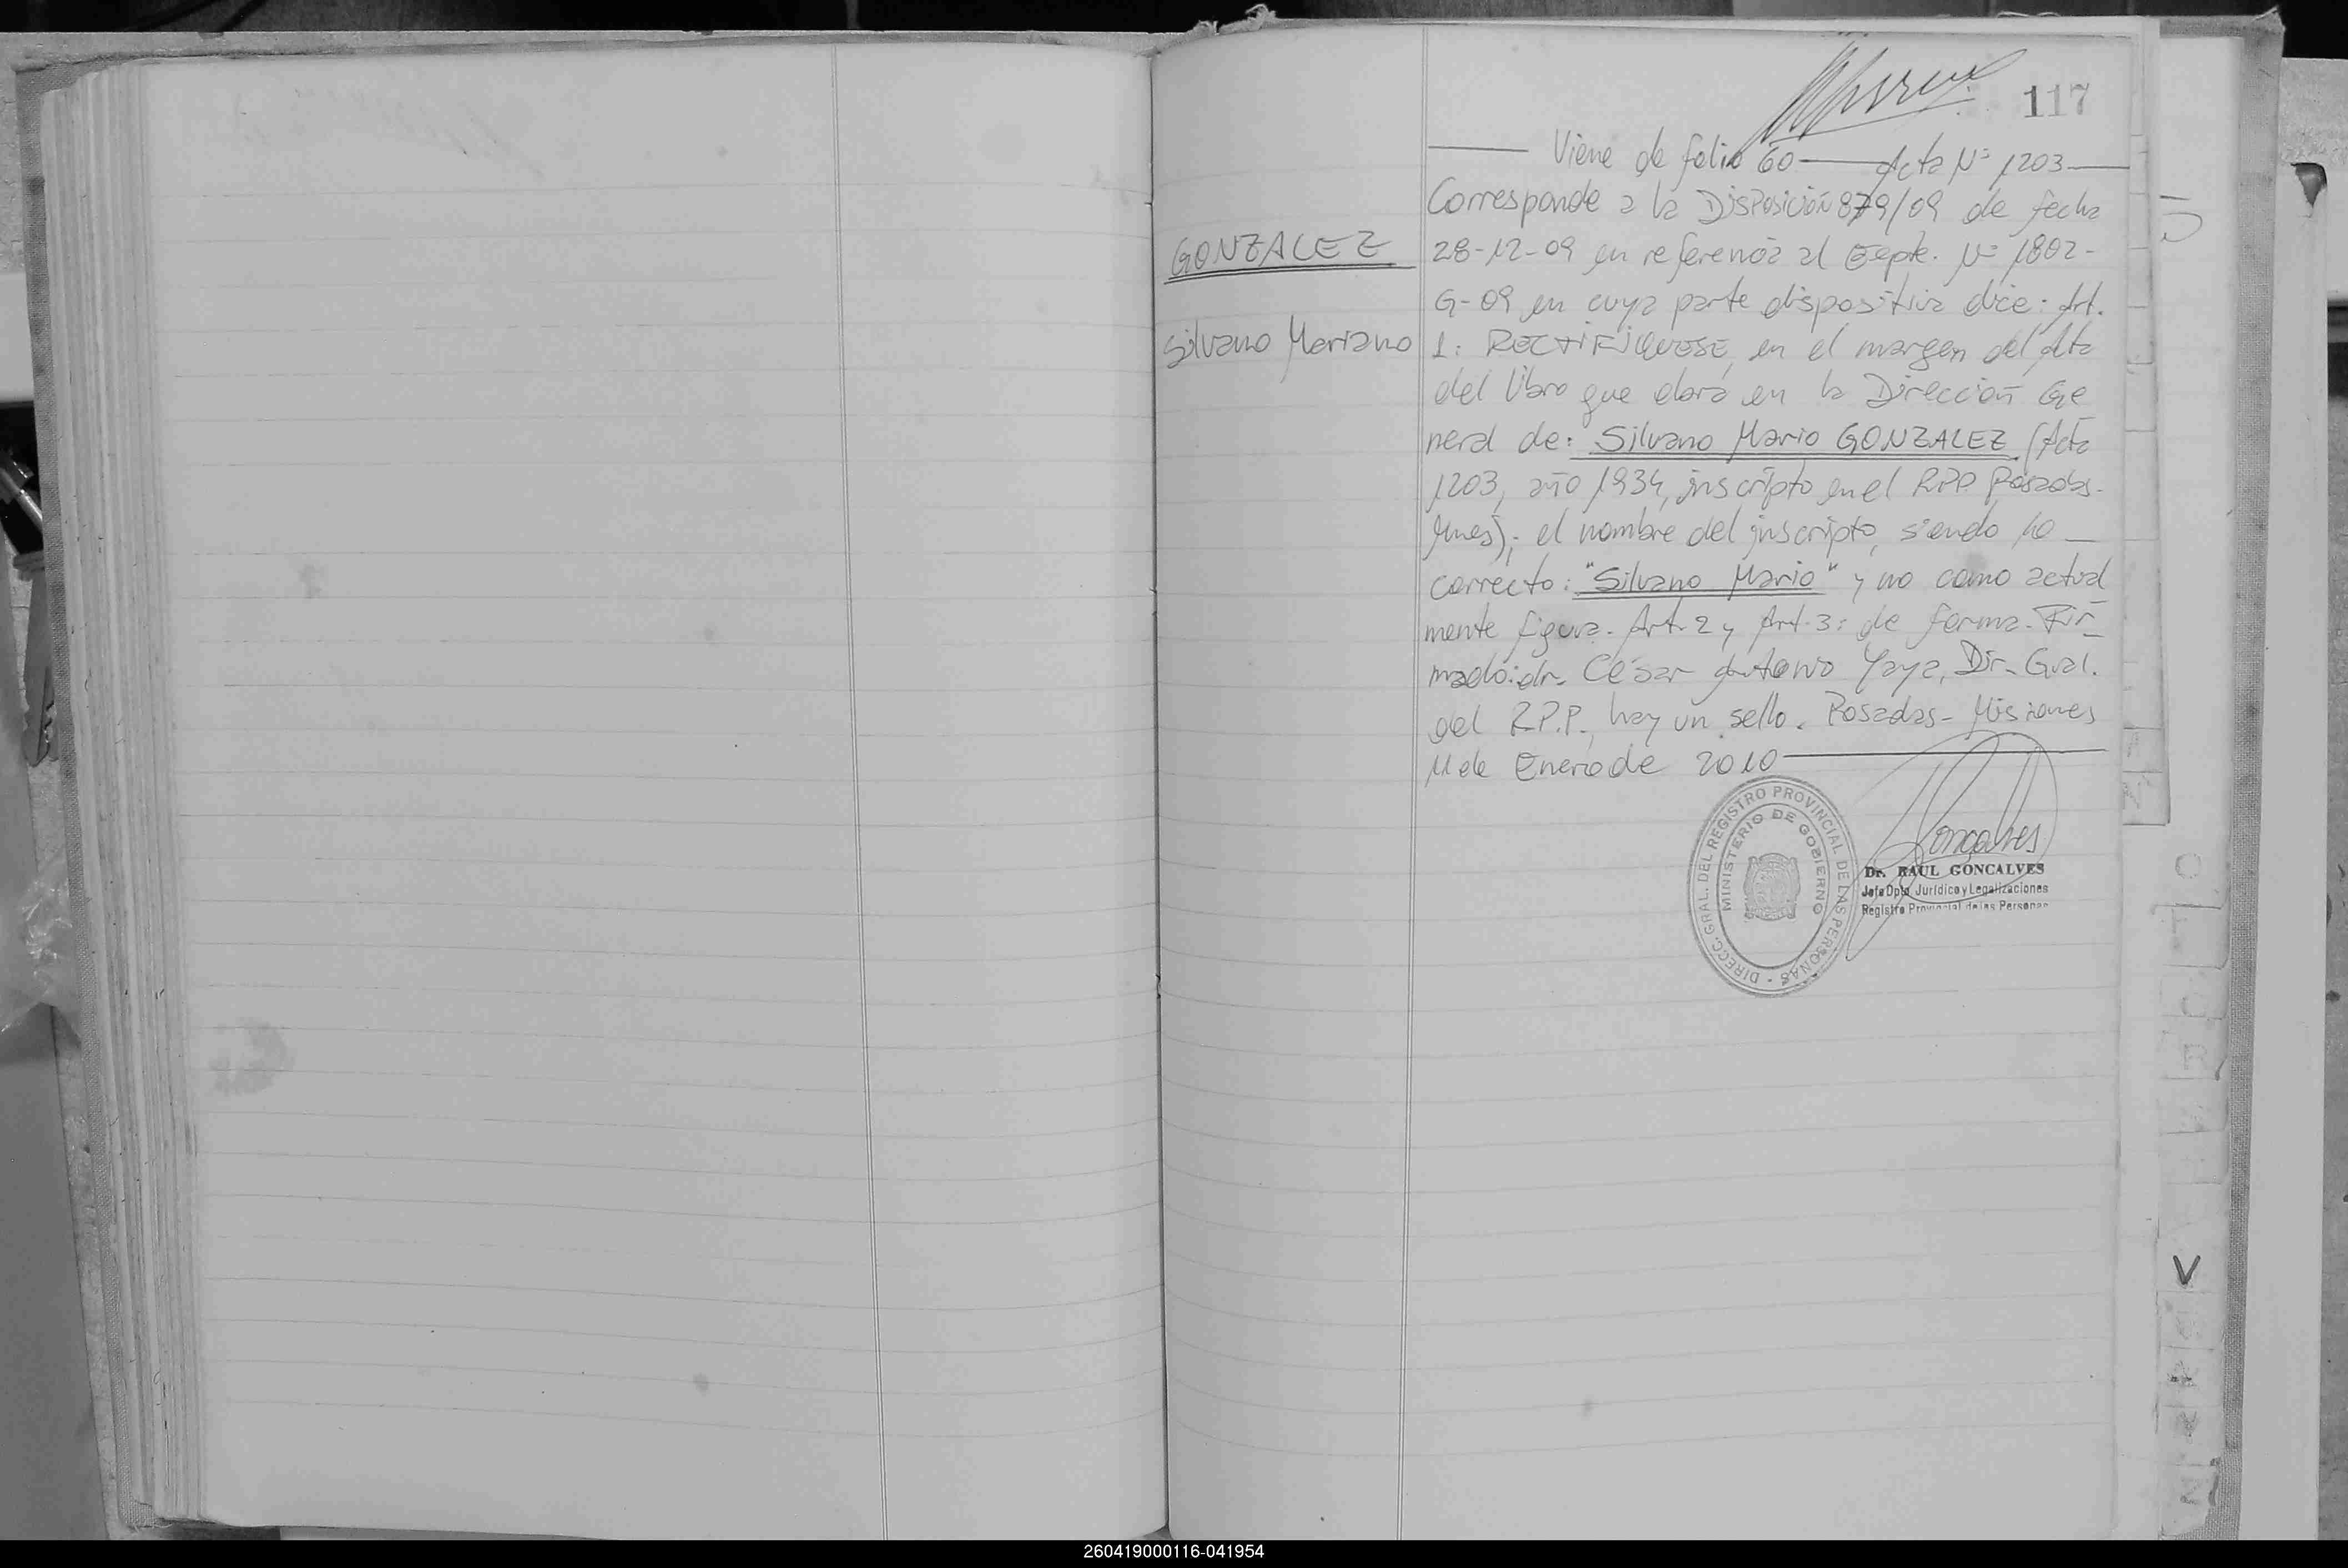 117
Viene de folio 60 Acta Nº 1203
Corresponde a la Disposición 879/09 de fecha
GONZALEZ
28-12-09 en referencia al Expte. Nº 1802-
G-09 en cuya parte dispositiva dice: Art.
Silvano Mariano
1: RECTIFIQUESE, en el margen del Acta
del libro que obra en la Dirección Ge
neral de: Silvano Mario GONZALEZ (Acta
1203, año 1934, inscripto en el RPP Posadas-
Mnes); el nombre del inscripto, siendo lo
correcto: "Silvano Mario" y no como actual
mente figura. Art. 2 y Art. 3: de forma. Fir
mado: dr. César Antonio Yaya, Dir. Gral.
del R.P.P., hay un sello. Posadas- Misiones
11 de Enero de 2010
DIRECC. GRAL. DEL REGISTRO PROVINCIAL DE LAS PERSONAS -
MINISTERIO DE GOBIERNO
Goncalves
Dr. RAUL GONCALVES
Jefe Dpto Jurídico y Legalizaciones
Registro Provincial de las Personas
V
260419000116-041954